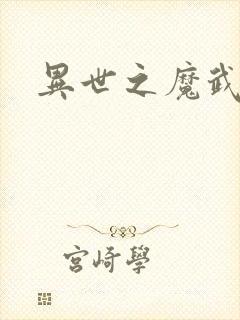 異世之魔武
宮崎學